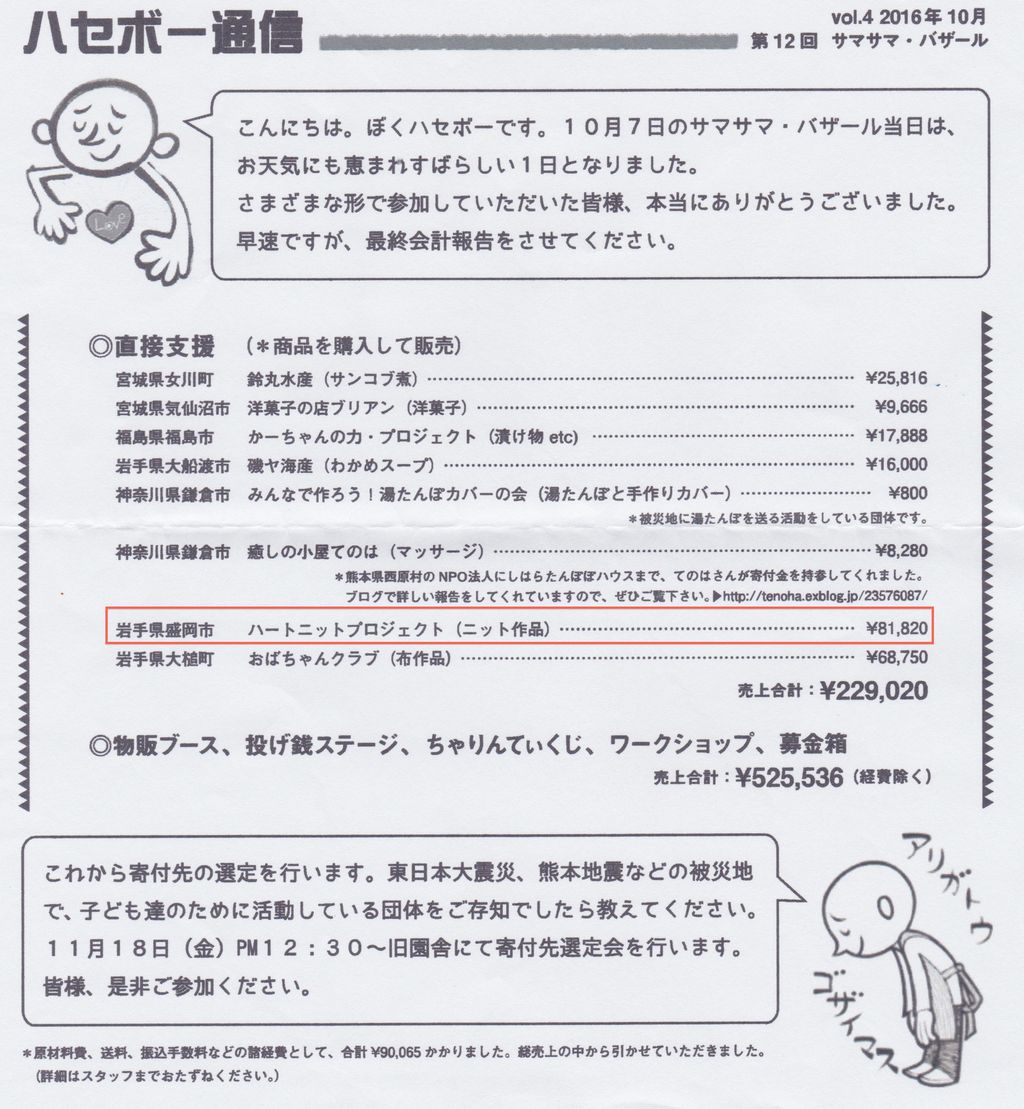 ハセボー通信
vol.4 2016年10月
第12回 サマサマ・バザール
こんにちは。ぼくハセボーです。１０月７日のサマサマ・バザール当日は、
お天気にも恵まれすばらしい１日となりました。
さまざまな形で参加していただいた皆様、本当にありがとうございました。
早速ですが、最終会計報告をさせてください。
Love
◎直接支援 （＊商品を購入して販売）
宮城県女川町 鈴丸水産（サンコブ煮）……………………………………… ¥25,816
宮城県気仙沼市 洋菓子の店ブリアン（洋菓子）……………………………………… ¥9,666
福島県福島市 かーちゃんの力・プロジェクト（漬け物 etc）……………………………… ¥17,888
岩手県大船渡市 磯ヤ海産（わかめスープ）……………………………………… ¥16,000
神奈川県鎌倉市 みんなで作ろう！湯たんぽカバーの会（湯たんぽと手作りカバー）……………… ¥800
＊被災地に湯たんぽを送る活動をしている団体です。
神奈川県鎌倉市 癒しの小屋てのは（マッサージ）……………………………………… ¥8,280
＊熊本県西原村の NPO法人にしはらたんぽぽハウスまで、てのはさんが寄付金を持参してくれました。
ブログで詳しい報告をしてくれていますので、ぜひご覧下さい。▶http://tenoha.exblog.jp/23576087/
岩手県盛岡市 ハートニットプロジェクト（ニット作品）……………………………… ¥81,820
岩手県大槌町 おばちゃんクラブ（布作品）……………………………………… ¥68,750
売上合計：¥229,020
◎物販ブース、投げ銭ステージ、ちゃりんてぃくじ、ワークショップ、募金箱
売上合計：¥525,536（経費除く）
これから寄付先の選定を行います。東日本大震災、熊本地震などの被災地
で、子ども達のために活動している団体をご存知でしたら教えてください。
１１月１８日（金）PM１２：３０～旧園舎にて寄付先選定会を行います。
皆様、是非ご参加ください。
アリガトウ
ゴザイマス
＊原材料費、送料、振込手数料などの諸経費として、合計 ¥90,065 かかりました。総売上の中から引かせていただきました。
（詳細はスタッフまでおたずねください。）